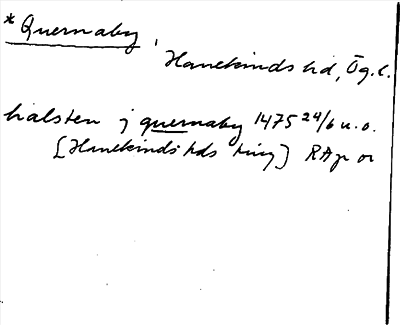 * Quernaby,
Hanekinds hd, Ög.l.
halsten j quernaby 1475 24/6 u.o.
[Hanekinds hds ting] RAp or